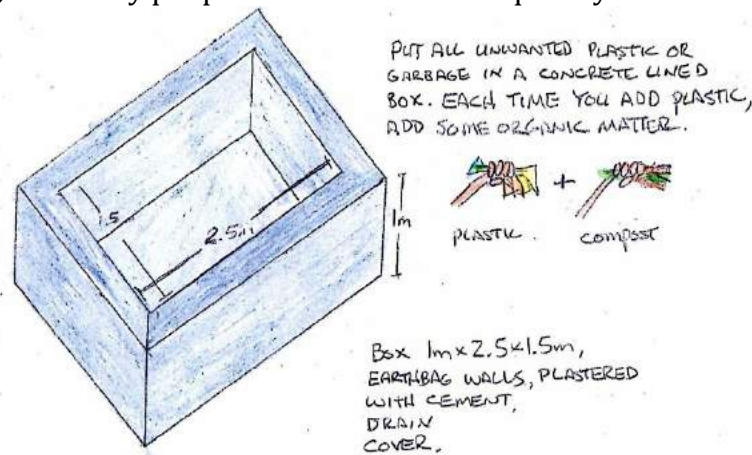 PUT ALL UNWANTED PLASTIC OR
GARBAGE IN A CONCRETE LINED
BOX. EACH TIME YOU ADD PLASTIC,
ADD SOME ORGANIC MATTER.
+
PLASTIC. COMPOST
1.5
2.5m
1m
BOX 1m x 2.5 x 1.5m,
EARTHBAG WALLS, PLASTERED
WITH CEMENT,
DRAIN
COVER,